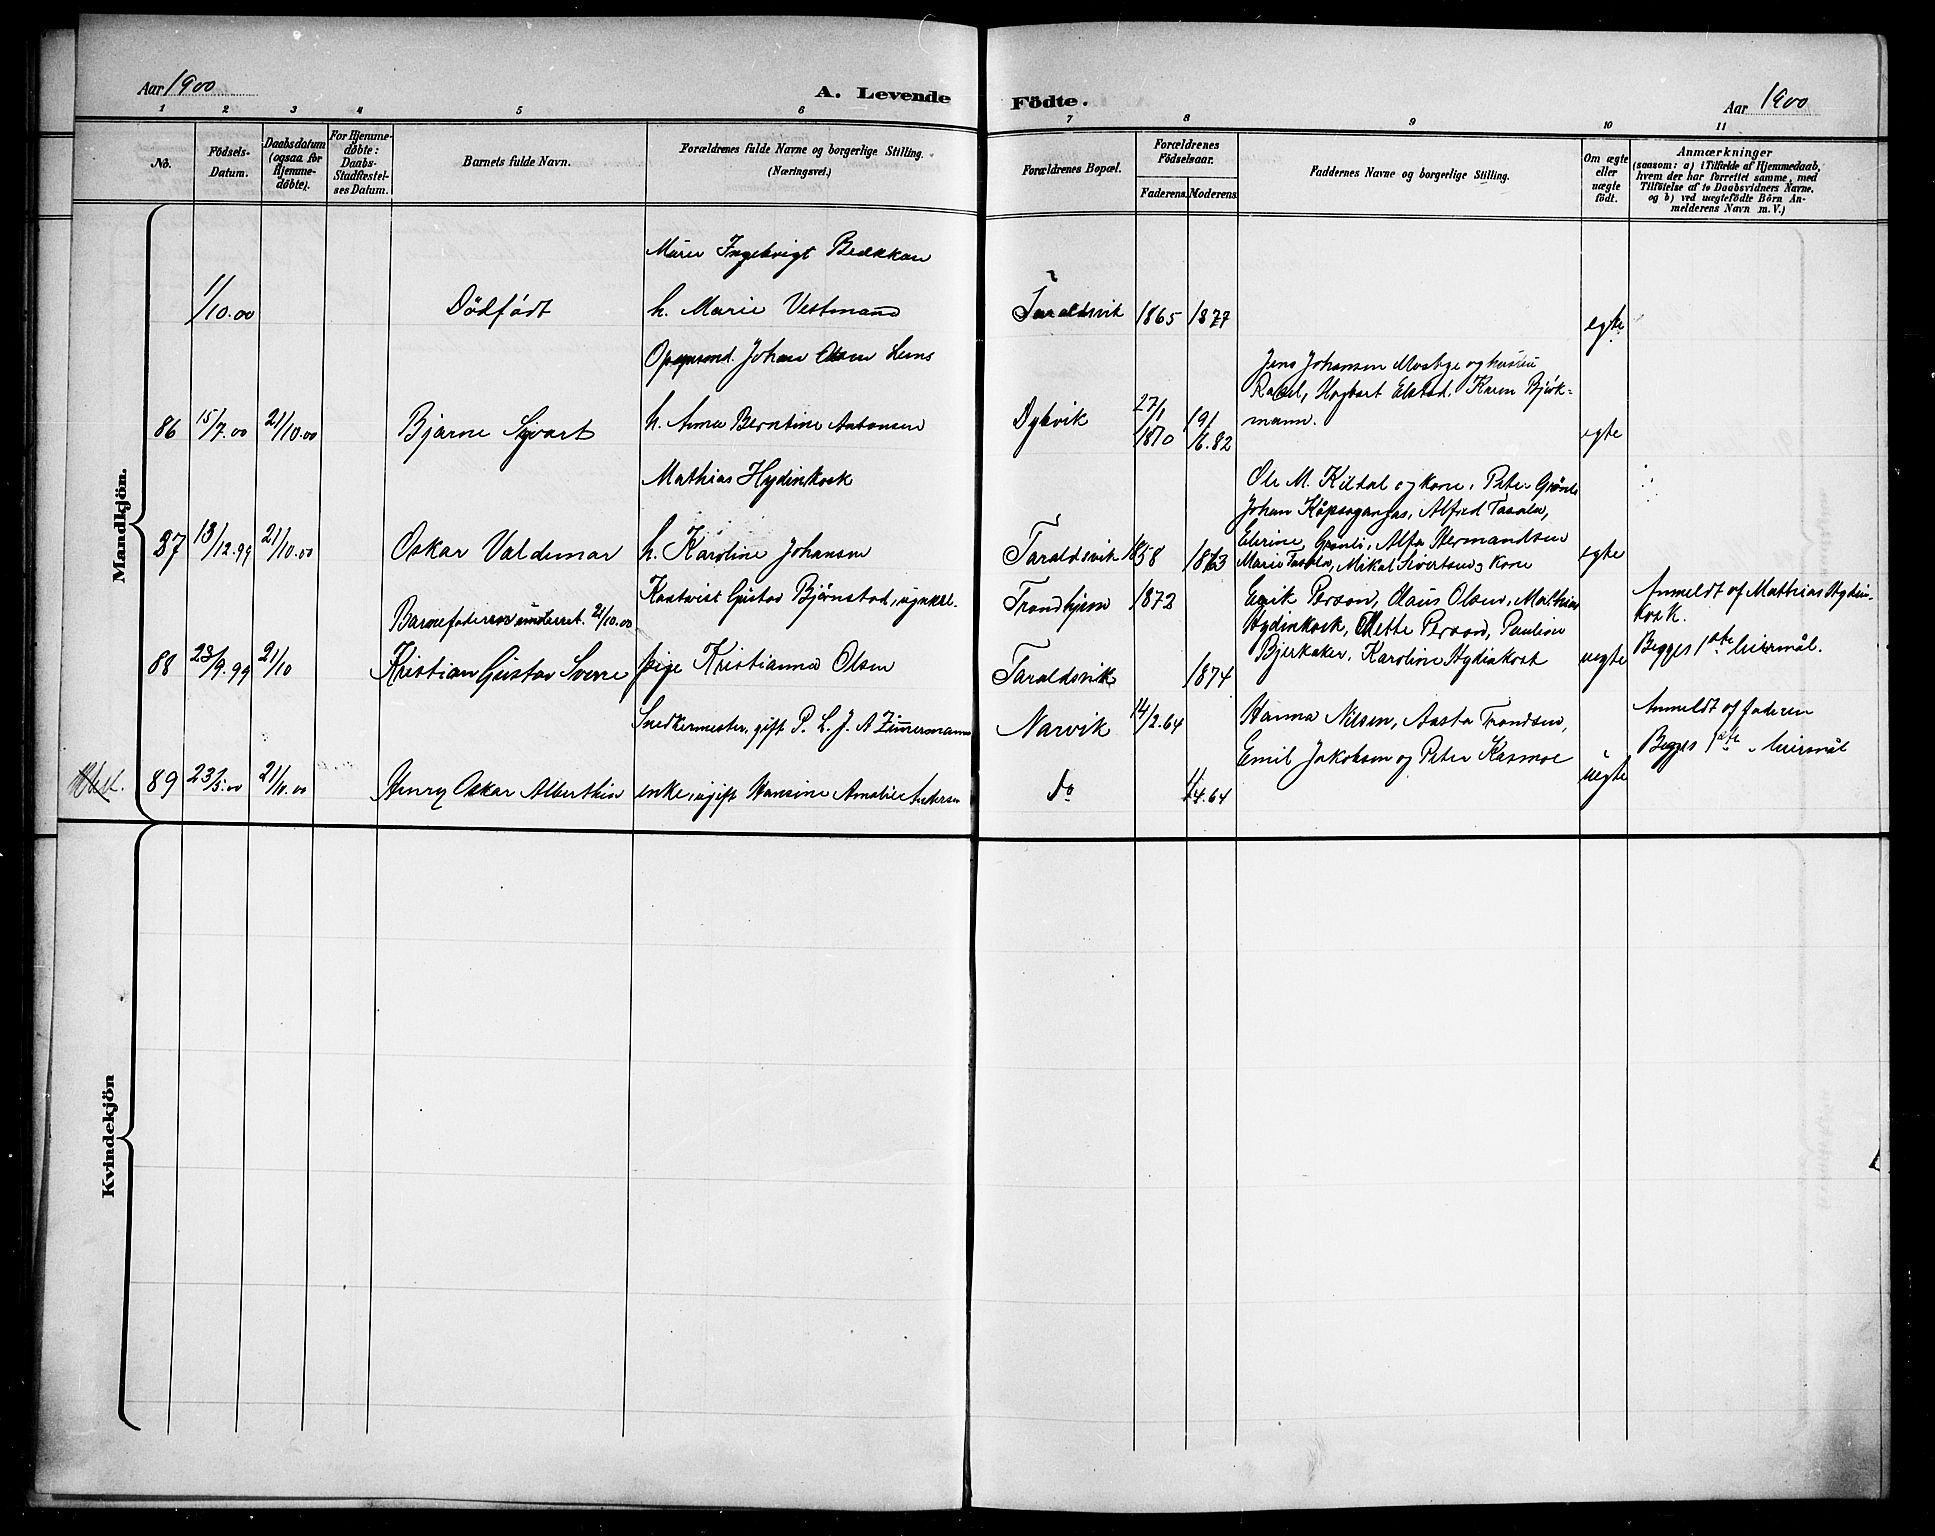 Aar 1900
A. Levende
Födte.
Aar 1900
1 2 3 4 5 6 7 8 9 10 11
No.
Födsels-
Datum.
Daabsdatum
(ogsaa for
Hjemme-
döbte).
For Hjemme-
døbte:
Daabs-
Stadfæstel-
ses Datum.
Barnets fulde Navn.
Forældrenes fulde Navne og borgerlige Stilling.
(Næringsvei.)
Forældrenes Bopæl.
Forældrenes
Födselsaar.
Faderens. Moderens.
Faddernes Navne og borgerlige Stilling.
Om ægte
eller
uægte
födt.
Anmærkninger
(saasom: a) i Tilfælde af Hjemmedaab,
hvem der har forrettet samme, med
Tilföielse af to Daabsvidners Navne.
og b) ved uægtefödte Börn An-
melderens Navn m. V.)
Mandkjön.
Ingebrigt Bækkan
1/10.00 Dödfödt h. Marie Vestmand Taraldsvik 1865 1877 egte
Johan Olsen
Jens Johansen og hustru
Elstad. Karen Bjørk-
86 15/7.00 21/10.00 Bjarne h. Anna Berntine Antonsen 27/1 1870 19/1 82 mann. egte
Mathias Hydinkosk
Ole M. Kildal og kone, Peter
Johan Alfred
Alfa Hermandsen
37 13/12.99 21/10.00 Oskar Valdemar h. Karoline Johansen Taraldsvik 1858 1863 Marie Mikal Sivertsen og kone egte
Barnefaderen underret. 21/10.00
Gustav Björnstad, ugift Trondhjem 1872
Erik Person, Olaus Olsen, Mathias
Anmeldt af Mathias Hydin-
kosk.
Hydinkosk, Mette Person, Pauline
88 23/9.99 21/10 Kristian Gustav Sverre pige Kristianna Olsen Taraldsvik 1874 Bjerkaker, Karoline Hydinkosk uegte Begges 1ste leiermål.
Snedkermester, gift P. L. J. A Zimmermann Narvik 14/2.64
Hanna Nilsen, Aasta Trondsen,
Anmeldt af faderen
89 23/5.00 21/10.00 Henry Oskar Alberthin enke, ugift Hansine Amalie Andersen do 1/4.64 Emil Jakobsen og Peter Kasmoe uegte Begges 1ste leiermål
Kvindekjön